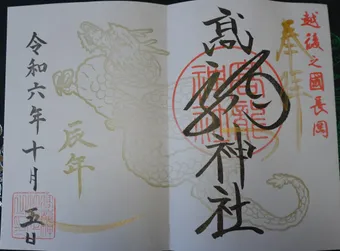 越後之國長岡
奉拝
髙龍神社
辰年
令和六年十月五日